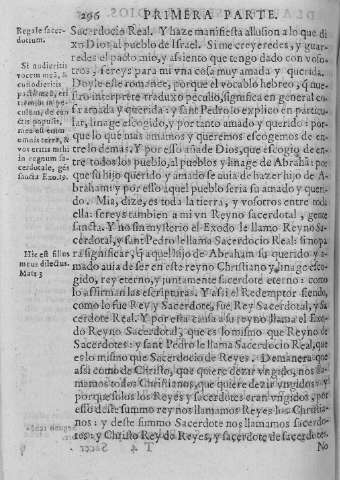 296 PRIMERA PARTE.
Regale sacerdotium.
Si audieritis vocem meã, & custodieritis pactũ meũ, eritis mihi in peculium, de cunctis populis, mea est enim omnis terra, & vos eritis mihi in regnum sacerdotale, gens sancta Exo. 19.
Hic est filius meus dilectus. Matt. 3
Sacerdocio Real. Y haze manifiesta allusion a lo que di
xo Dios al pueblo de Israel. Si me creyeredes, y guar-
redes el pacto mio, y assiento que tengo dado con voso-
tros, sereys para mi vna cosa muy amada y querida.
Doyle este romance, porque el vocablo hebreo, q̃ nue-
stro interprete traduxo peculio, significa en general co
sa amada y querida: y sant Pedro lo explico en particu-
lar, image escogido, y por tanto amado y querido: por
que lo que mas amamos y queremos escogemos de en
tre lo demas. Y por esso añade Dios, que escogio de en-
tre todos los pueblo, al pueblos y linage de Abrahã: por
que su hijo querido y amado se auia de hazer hijo de A-
braham: y por esso aquel pueblo seria su amado y queri-
do. Mia, dize, es toda la tierra, y vosotros entre toda
ella: sereys tambien a mi vn Reyno sacerdotal, gente
sancta. Y no sin mysterio el Exodo le llamo Reyno Sa-
cerdotal, y sant Pedro le llama Sacerdocio Real: sino pa
ra significar, q̃ aquel hijo de Abraham su querido y a-
mado auia de ser en este reyno Christiano y linage esco-
gido, rey eterno, y juntamente sacerdote eterno: como
lo affirman las escripturas. Y assi el Redemptor siendo,
como lo fue Rey y Sacerdote, fue Rey Sacerdotal, y Sa
cerdote Real. Y por esta causa a su reyno llama el Exo-
do Reyno Sacerdotal, que es lo mismo que Reyno de
Sacerdotes: y sant Pedro le llama Sacerdocio Real, que
es lo mismo que Sacerdocio de Reyes. De manera que
assi como de Christo, que quiere dezir vngido, nos lla-
mamos todos Christianos, que quiere dezir vngidos: y
porque solos los Reyes y sacerdotes eran vngidos, por
esso deste summo rey nos llamamos Reyes los Christia-
nos: y deste summo Sacerdote nos llamamos sacerdo-
tes: y Christo Rey de Reyes, y sacerdote de sacerdotes.
T 4
No